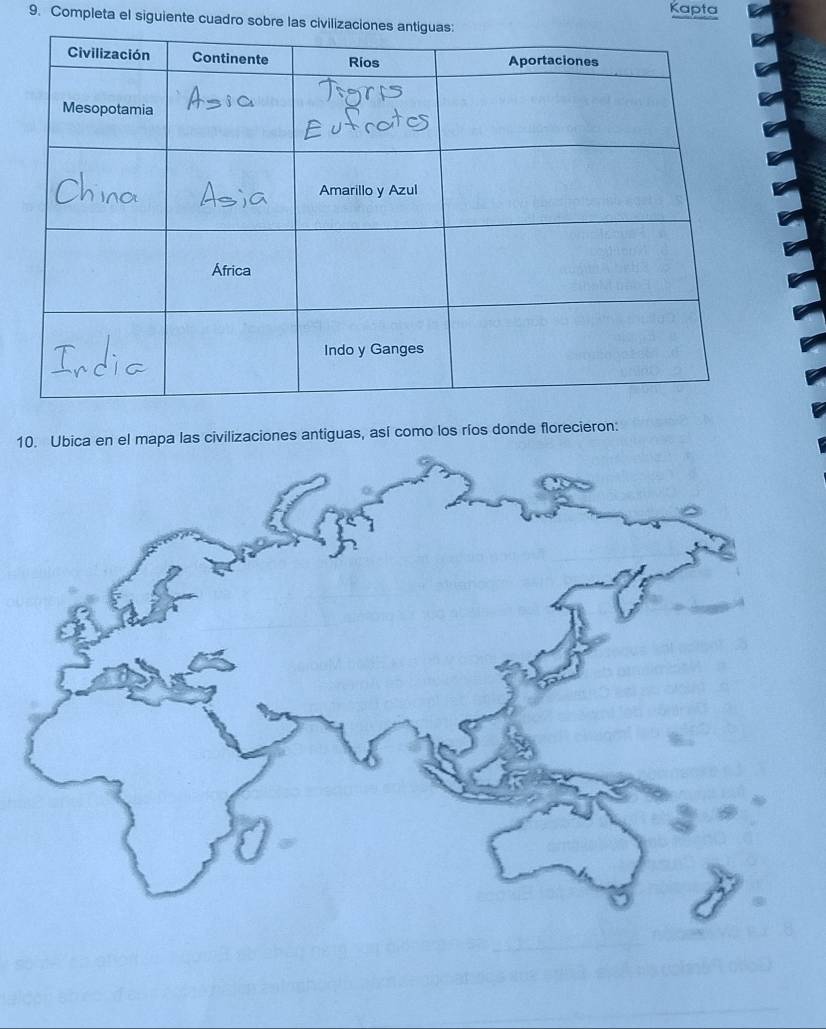 Kapta
9. Completa el siguiente cuadro sobre las civilizaciones antiguas:
Civilización Continente Ríos Aportaciones
Mesopotamia Asia Tigris
Eufrates
China Asia Amarillo y Azul
África
India Indo y Ganges
10. Ubica en el mapa las civilizaciones antiguas, así como los ríos donde florecieron: